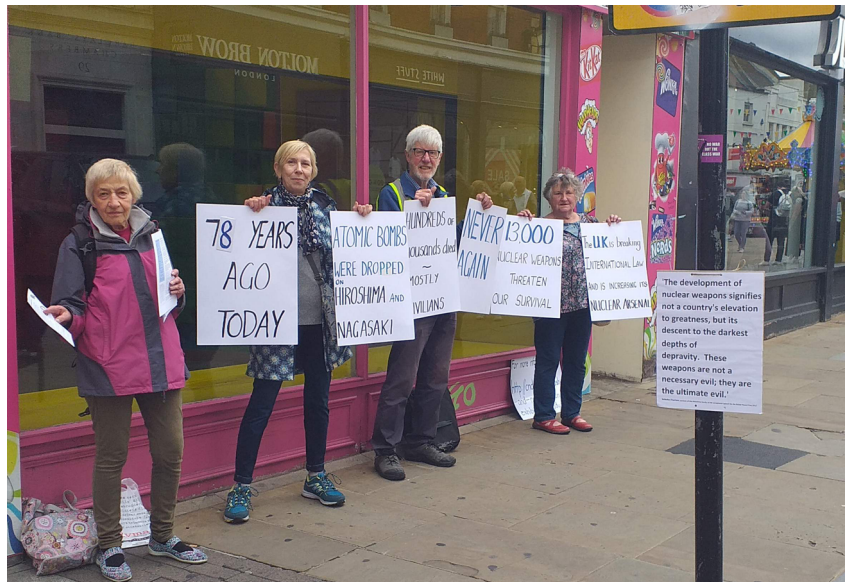 MOLTON BROW
LONDON
WHITE STUFF
SALE
KitKat
WONKA
NERDS
78 YEARS
AGO
TODAY
ATOMIC BOMBS
WERE DROPPED
ON
HIROSHIMA AND
NAGASAKI
HUNDREDS OF
thousands died
~
MOSTLY
CIVILIANS
NEVER
AGAIN
13,000
NUCLEAR WEAPONS
THREATEN
OUR SURVIVAL
The UK is breaking
INTERNATIONAL LAW
AND IS INCREASING ITS
NUCLEAR ARSENAL
For more
'The development of
nuclear weapons signifies
not a country's elevation
to greatness, but its
descent to the darkest
depths of
depravity. These
weapons are not a
necessary evil; they are
the ultimate evil.'